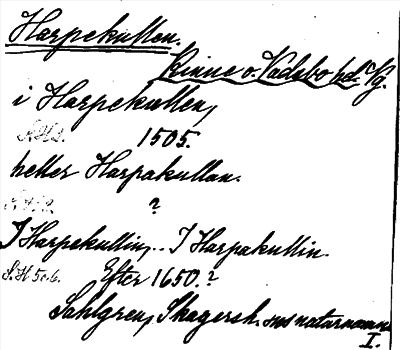 Harpekullen.
Kinne o. Vadsbo hd. Vg.
i Harpekullen,
1505.
heller Harpakullan.
?
I Harpekullin, .. I Harpakullin.
S.H 5c6. Efter 1650.?
Sahlgren, Skagersh. sns naturnamn
I.